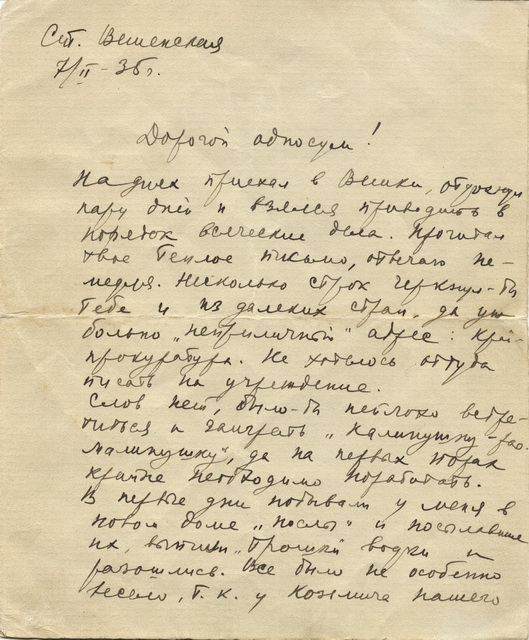 Ст. Вешенская
7/II – 36 г.
Дорогой односум!
На днях приехал в Вешки, отдохнул
пару дней и взялся приводить в
порядок всяческие дела. Прочитал
твое теплое письмо, отвечаю не-
медля. Несколько строк черкнул-бы
тебе и из далеких стран, да уж
больно „неприличный" адрес: Край-
прокуратура. Не хотелось оттуда
писать на учреждение.
Слов нет, было-бы неплохо встре-
титься и заиграть „Калинушку-
малинушку", да на первых порах
крайне необходимо поработать.
В первые дни побывали у меня в
новом доме „послы" и пославшие
их, выпили водки и
разошлись. Все было не особенно
весело, т. к. у Козьмича нашего